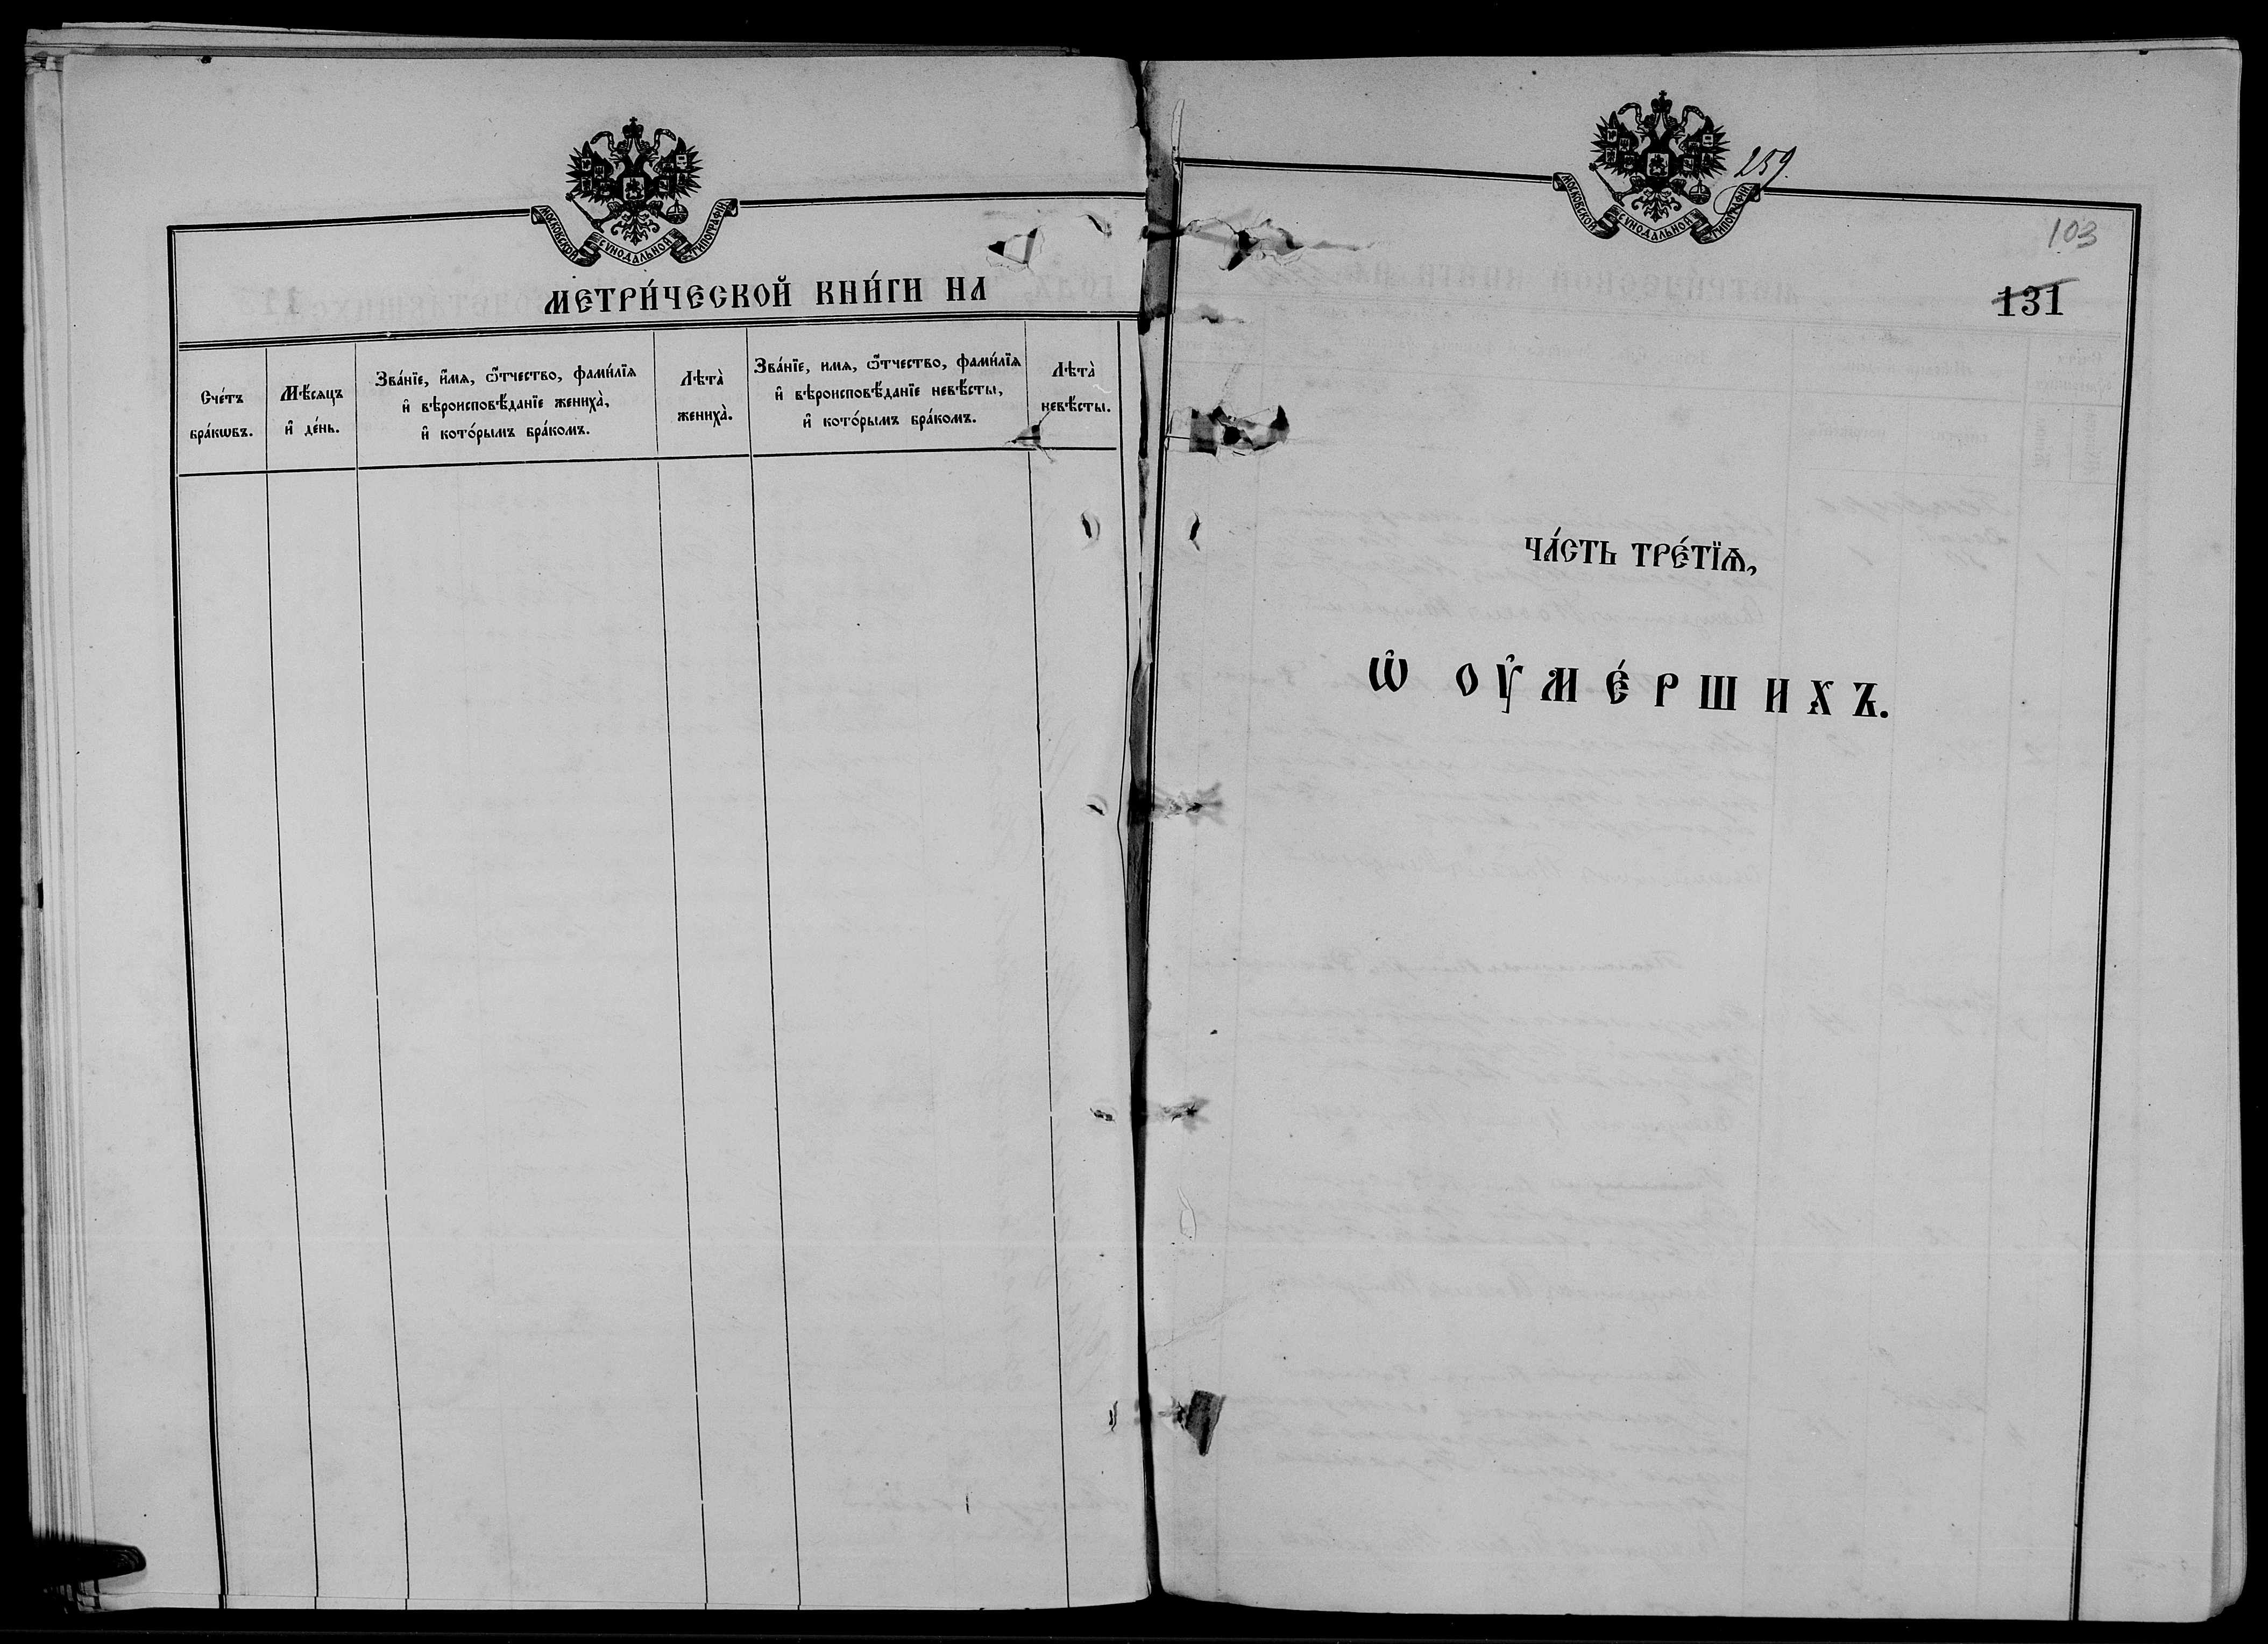 МОСКОВСКОЙ СѴНОДАЛЬНОЙ ТИПОГРАФІИ
МЕТРИ́ЧЕСКОЙ КНИ́ГИ НА
Сче́тъ
бра́кѡвъ.
Мѣ́сяцъ
и҆ де́нь.
Зва́нїе, и҆́мя, ѻ҆́тчество, фами́лїя
и҆ вѣроисповѣ́данїе жениха̀,
и҆ кото́рымъ бра́комъ.
Лѣта̀
жениха̀.
Зва́нїе, и҆мя, ѻ҆́тчество, фами́лїя
и҆ вѣроисповѣ́данїе невѣ́сты,
и҆ кото́рымъ бра́комъ.
Лѣта̀
невѣ́сты.
МОСКОВСКОЙ СѴНОДАЛЬНОЙ ТИПОГРАФІИ
259.
103
131
ЧА́СТЬ ТРЕ́ТЇѦ,
Ѡ҆ ОУ҆МЕ́РШИХЪ.